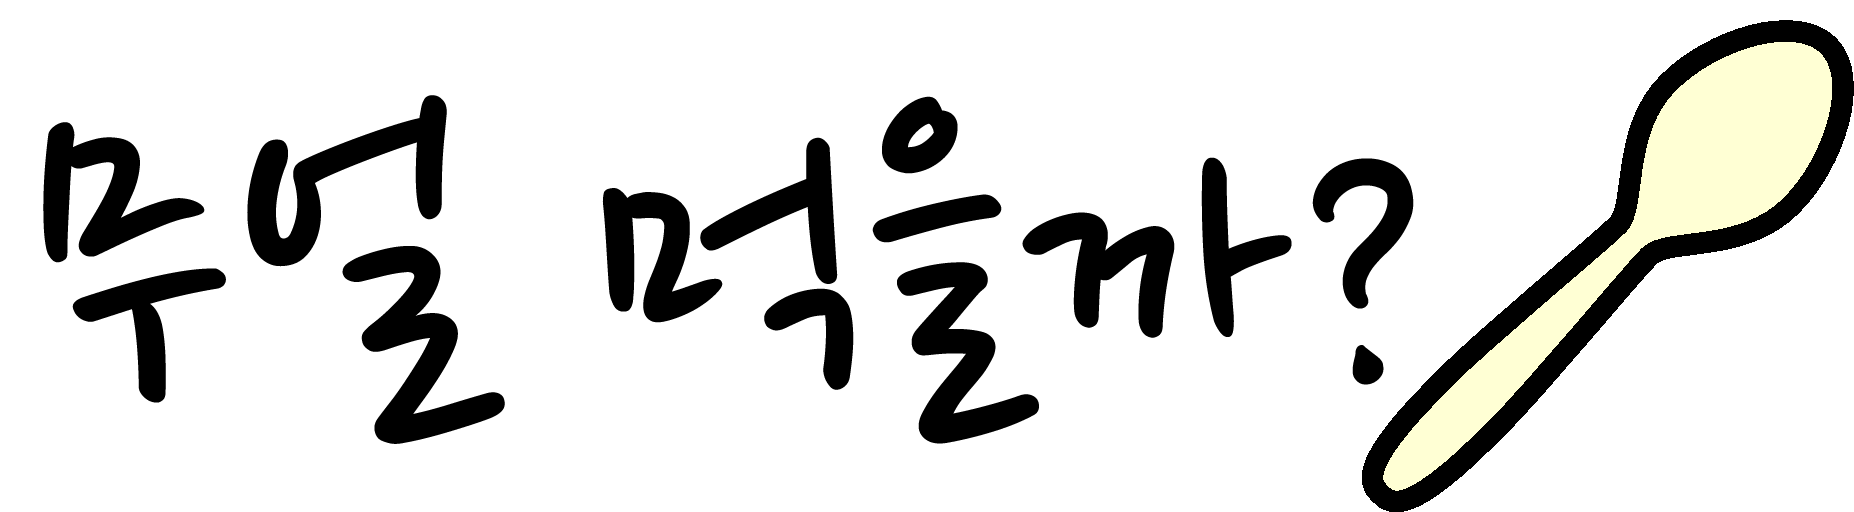 무얼 먹을까?